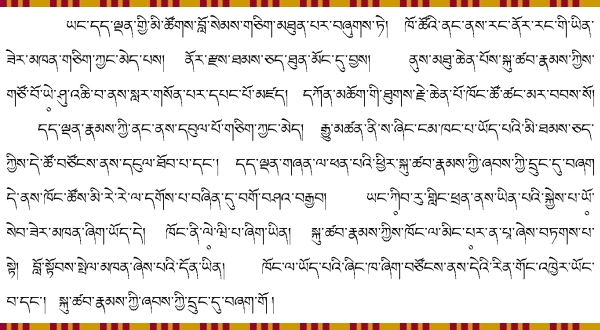 ཡང་དད་ལྡན་གྱི་མི་ཚོགས་བློ་སེམས་གཅིག་མཐུན་པར་བཞུགས་ཏེ། ཁོ་ཚོའི་ནང་ནས་རང་ནོར་རང་གི་ཡིན་
ཟེར་མཁན་གཅིག་ཀྱང་མེད་པས། ནོར་རྫས་ཐམས་ཅད་ཐུན་མོང་དུ་བྱས། ནུས་མཐུ་ཆེན་པོས་སྐུ་ཚབ་རྣམས་ཀྱིས་
གཙོ་བོ་ཡེ་ཤུ་འཆི་བ་ནས་སླར་གསོན་པར་དཔང་པོ་མཛད། དཀོན་མཆོག་གི་ཐུགས་རྗེ་ཆེན་པོ་ཁོང་ཚོ་ཚང་མར་བབས་སོ།
དད་ལྡན་རྣམས་ཀྱི་ནང་ནས་དབུལ་པོ་གཅིག་ཀྱང་མེད། རྒྱུ་མཚན་ནི་ས་ཞིང་ངམ་ཁང་པ་ཡོད་པའི་མི་ཐམས་ཅད་
ཀྱིས་དེ་ཚོ་བཙོངས་ནས་དངུལ་ཐོབ་པ་དང་། དད་ལྡན་གཞན་ལ་ཕན་པའི་ཕྱིར་སྐུ་ཚབ་རྣམས་ཀྱི་ཞབས་ཀྱི་དྲུང་དུ་བཞག
དེ་ནས་ཁོང་ཚོས་མི་རེ་རེ་ལ་དགོས་པ་བཞིན་དུ་བགོ་བཤའ་བརྒྱབ། ཡང་ཀིབ་རུ་གླིང་ཕྲན་ནས་ཡིན་པའི་སྐྱེས་པ་ཡོ་
སེབ་ཟེར་མཁན་ཞིག་ཡོད་དེ། ཁོང་ནི་ལེ་ཝི་པ་ཞིག་ཡིན། སྐུ་ཚབ་རྣམས་ཀྱིས་ཁོང་ལ་མིང་པར་ན་པཱ་ཞེས་བཏགས་པ་
སྟེ། བློ་སྟོབས་སྤེལ་མཁན་ཞེས་པའི་དོན་ཡིན། ཁོང་ལ་ཡོད་པའི་ཞིང་ཁ་ཞིག་བཙོངས་ནས་དེའི་རིན་གོང་འཁྱེར་ཡོང་
བ་དང་། སྐུ་ཚབ་རྣམས་ཀྱི་ཞབས་ཀྱི་དྲུང་དུ་བཞག་གོ །